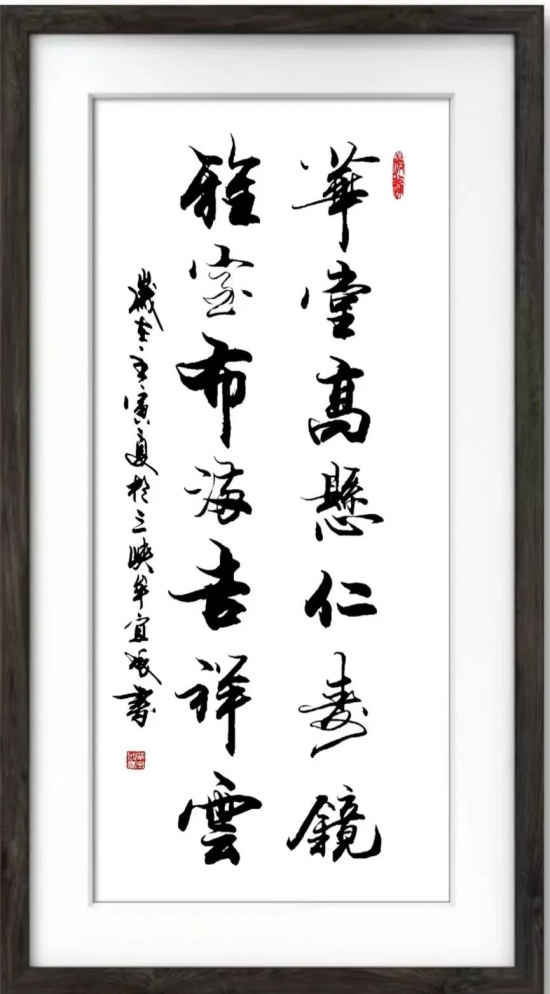 華堂高懸仁寿鏡
雅室布满吉祥雲
歲在壬寅夏於三峡牟宜-書